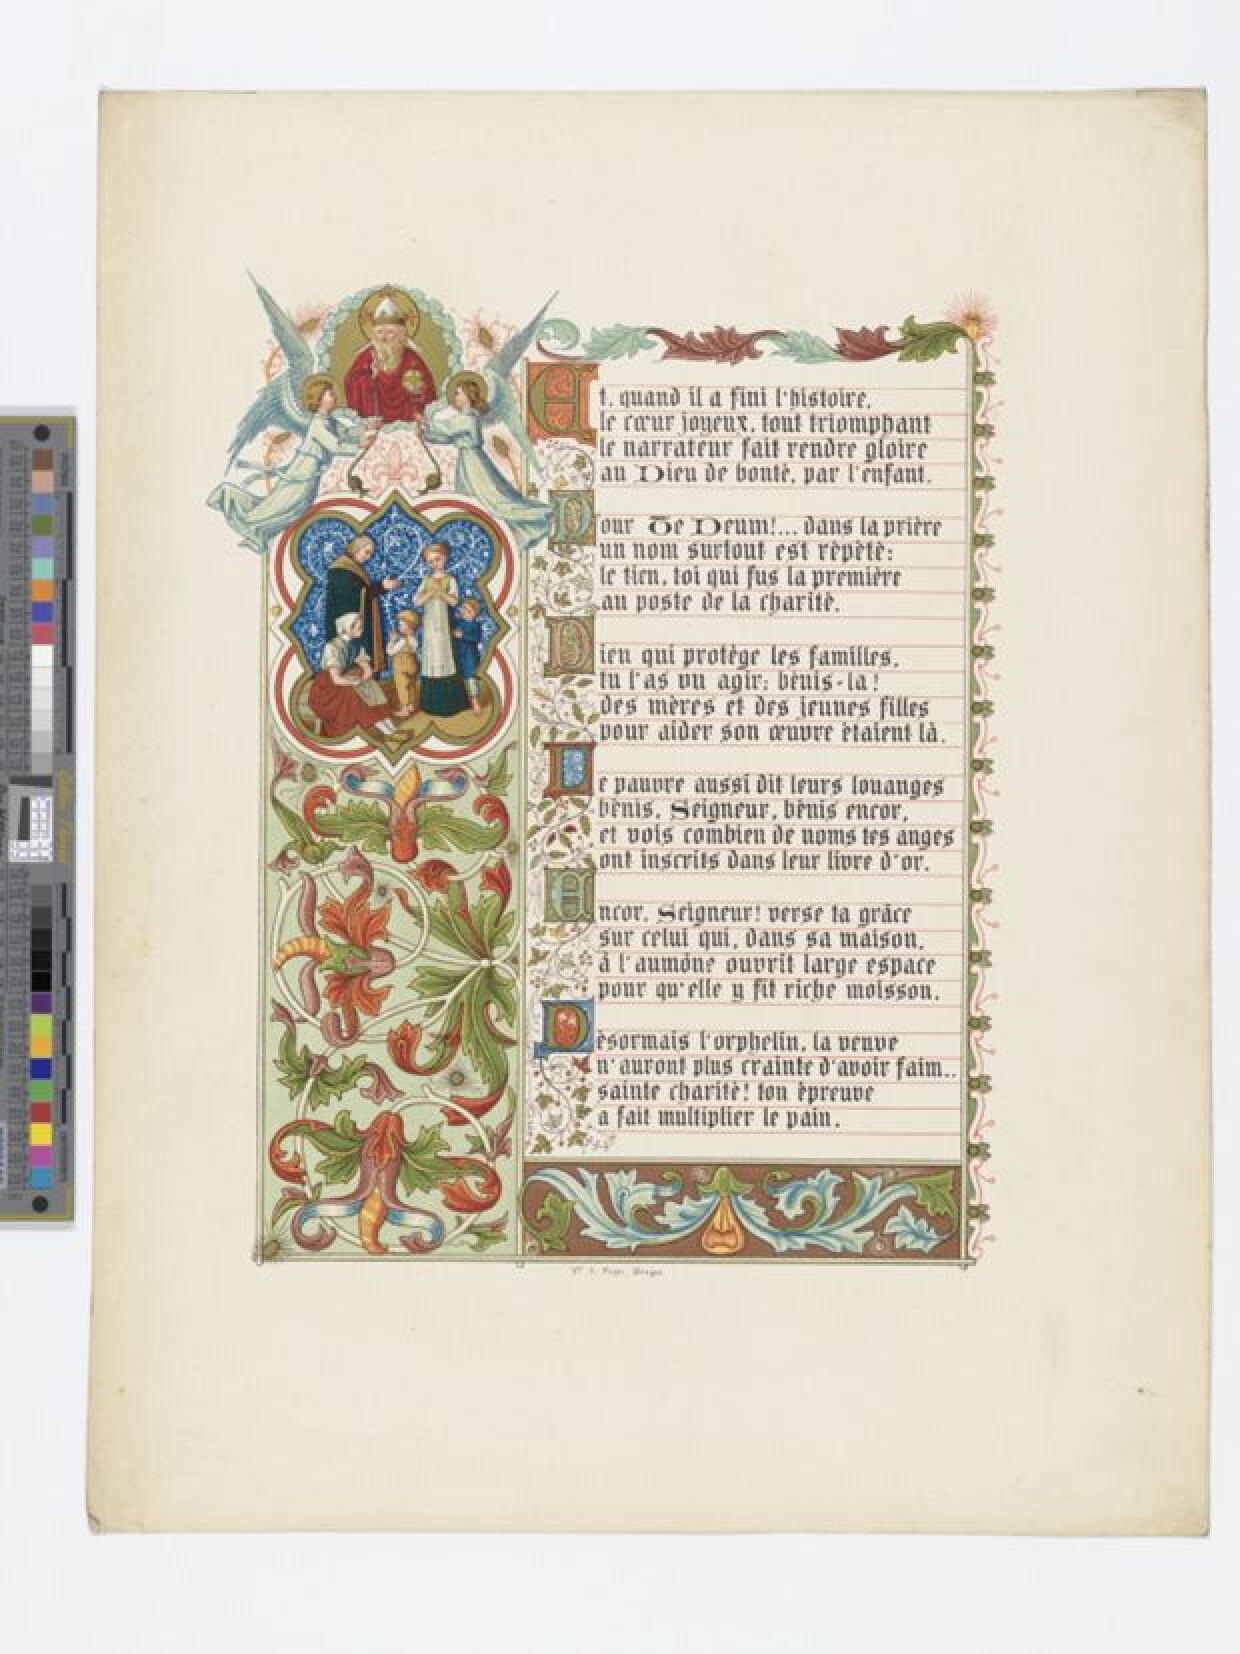 Et, quand il a fini l'histoire,
le cœur joyeux, tout triomphant
le narrateur fait rendre gloire
au Dieu de bonté, par l'enfant.
Pour Te Deum!... dans la prière
un nom surtout est répété:
le tien, toi qui fus la première
au poste de la charité.
Dieu qui protège les familles,
tu l'as vu agir: bénis-la!
des mères et des jeunes filles
pour aider son œuvre étaient là.
Le pauvre aussi dit leurs louanges
bénis, Seigneur, bénis encor,
et vois combien de noms tes anges
ont inscrits dans leur livre d'or.
Encor, Seigneur! verse ta grâce
sur celui qui, dans sa maison,
à l'aumône ouvrit large espace
pour qu'elle y fit riche moisson.
Désormais l'orphelin, la veuve
n'auront plus crainte d'avoir faim..
sainte charité! ton épreuve
a fait multiplier le pain.